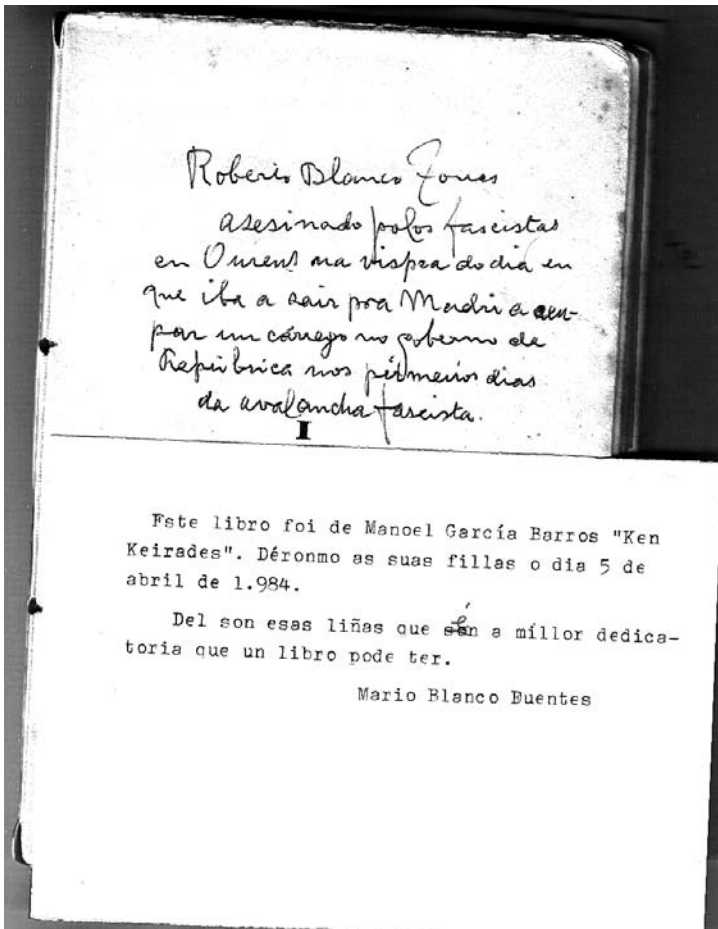 Roberto Blanco Torres
asesinado polos fascistas
en Ourens na vispra do dia en
que iba a sair pra Madri a ocu-
par un cárrego no goberno da
República nos pirmeiros dias
da avalancha fascista.
I
Este libro foi de Manoel García Barros "Ken
Keirades". Déronmo as suas fillas o dia 5 de
abril de 1.984.
Del son esas liñas que é a míllor dedica-
toria que un libro pode ter.
Mario Blanco Fuentes